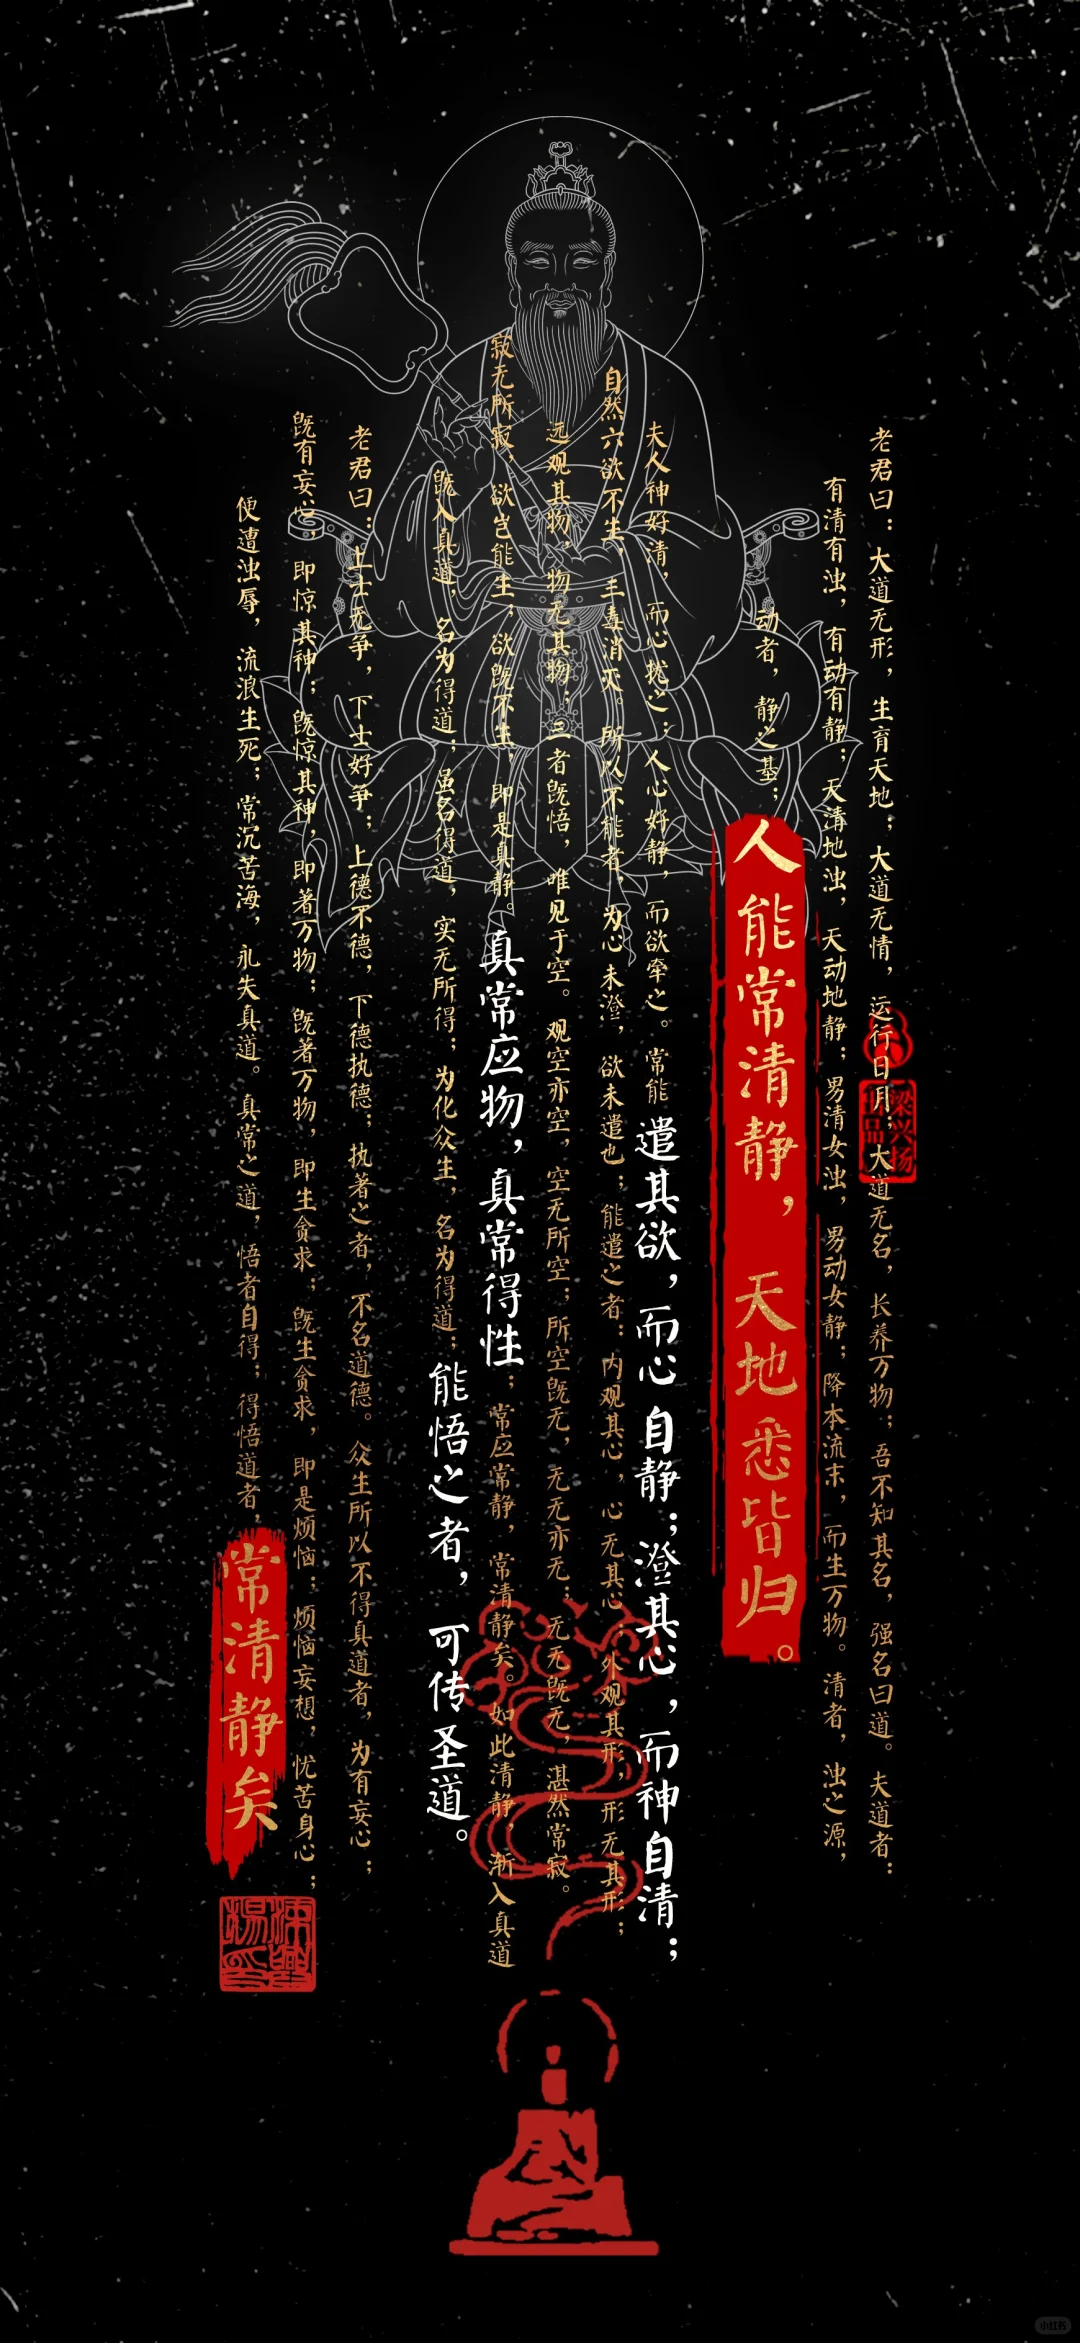 老君曰：大道无形，生育天地；大道无情，运行日月；大道无名，长养万物；吾不知其名，强名曰道。夫道者：
梁兴扬
有清有浊，有动有静；天清地浊，天动地静；男清女浊，男动女静；降本流末，而生万物。清者，浊之源，
动者，静之基；人能常清静，天地悉皆归。
夫人神好清，而心扰之；人心好静，而欲牵之。常能遣其欲，而心自静；澄其心，而神自清；
自然六欲不生，三毒消灭。所以不能者，为心未澄，欲未遣也；能遣之者：内观其心，心无其心；外观其形，形无其形；
远观其物，物无其物；三者既悟，唯见于空。观空亦空，空无所空；所空既无，无无亦无；无无既无，湛然常寂。
寂无所寂，欲岂能生；欲既不生，即是真静。真常应物，真常得性；常应常静，常清静矣。如此清静，渐入真道
既入真道，名为得道；虽名得道，实无所得；为化众生，名为得道；能悟之者，可传圣道。
老君曰：上士无争，下士好争；上德不德，下德执德；执著之者，不名道德。众生所以不得真道者，为有妄心；
既有妄心，即惊其神；既惊其神，即著万物；既著万物，即生贪求；既生贪求，即是烦恼；烦恼妄想，忧苦身心；
便遭浊辱，流浪生死；常沉苦海，永失真道。真常之道，悟者自得；得悟道者，常清静矣
小红书